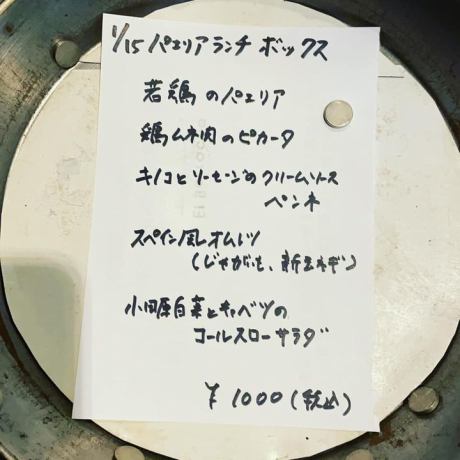 1/15 パエリアランチ ボックス
若鶏のパエリア
鶏ムネ肉のピカータ
キノコとソーセージのクリームソース
ペンネ
スペイン風オムレツ
(じゃがいも、新玉ネギ)
小田原白菜とキャベツの
コールスローサラダ
¥1000(税込)